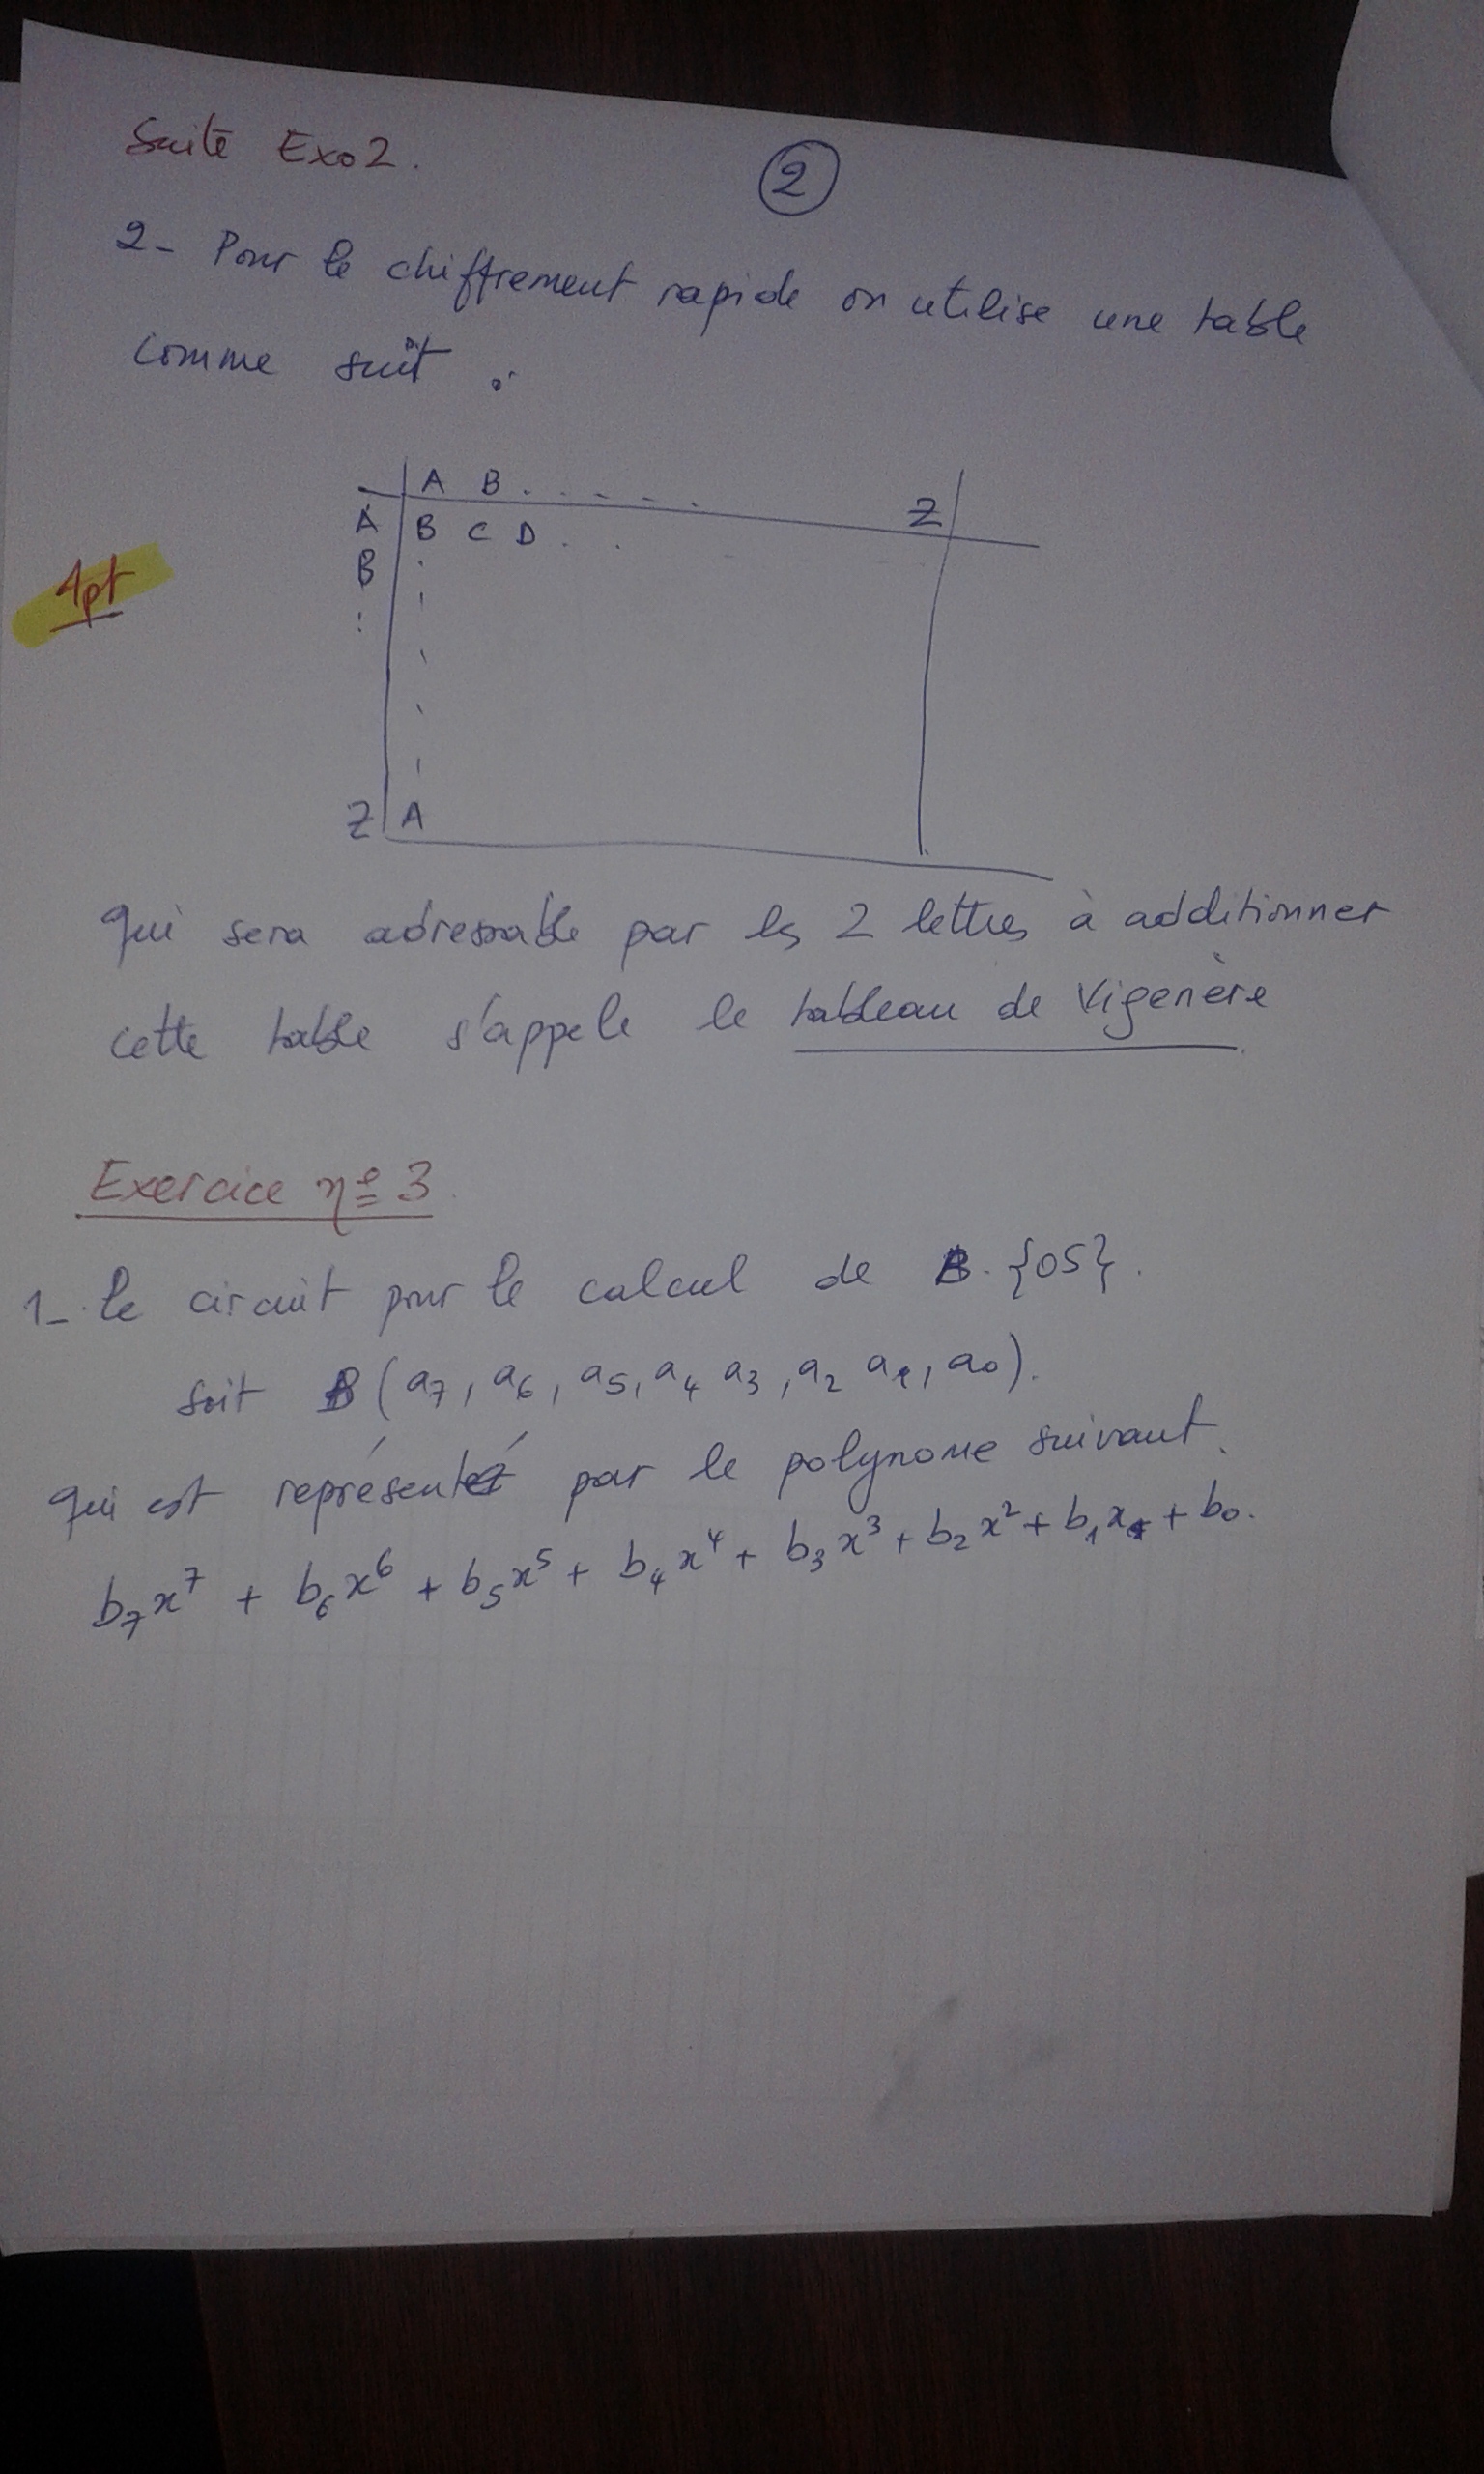 Suite Exo2.
2
2- Pour le chiffrement rapide on utilise une table
comme suit :
A B . . . . . Z
A B C D . .
B
:
1pt
Z A
qui sera adressable par les 2 lettres à additionner
cette table s'appele le tableau de Vigenère
Exercice n° 3
1- le circuit pour le calcul de B. {05}.
soit B (a₇, a₆, a₅, a₄ a₃, a₂ a₁, a₀).
qui est représenté par le polynome suivant.
b₇x⁷ + b₆x⁶ + b₅x⁵ + b₄x⁴ + b₃x³ + b₂x² + b₁x + b₀.